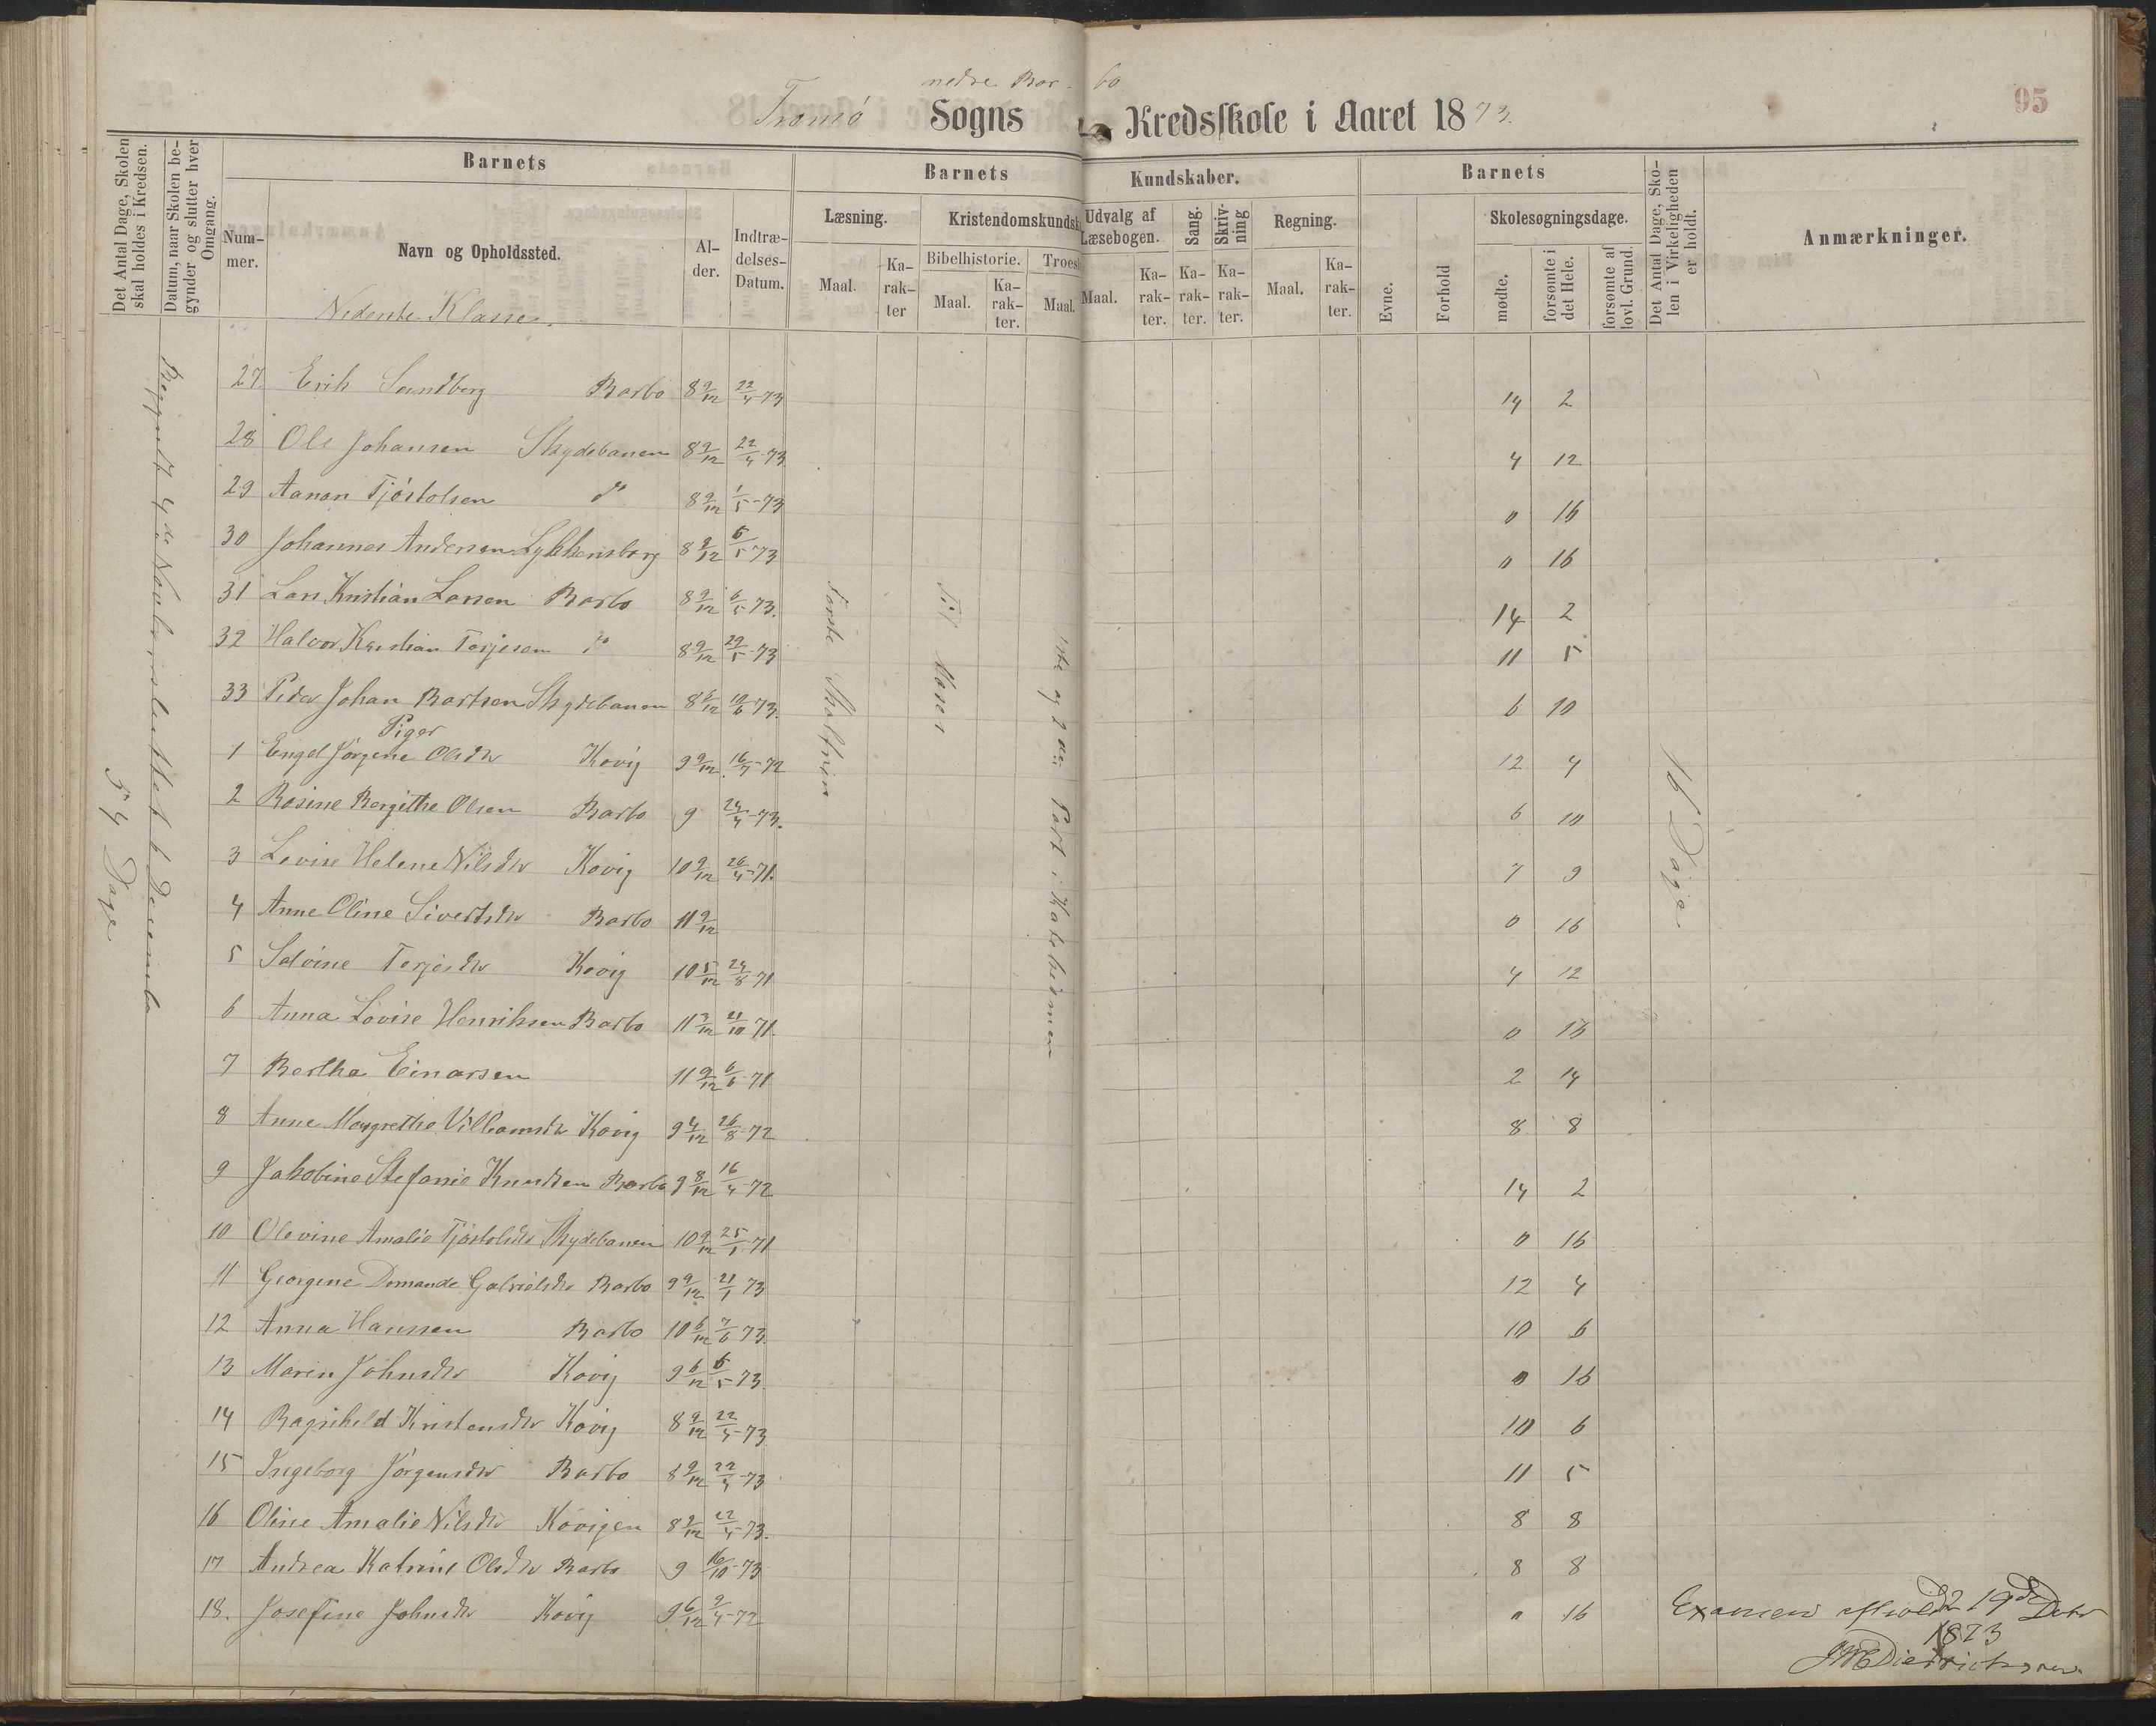 nedre Bar-bo
95
Tromø Sogns Kredsskole i Aaret 1873.
Det Antal Dage, Skolen skal holdes i Kredsen.
Datum, naar Skolen begynder og slutter hver Omgang.
Barnets
Nummer.
Navn og Opholdssted.
Alder.
Indtrædelses-Datum.
Barnets Kundskaber.
Læsning.
Maal.
Karakter
Kristendomskundsk
Bibelhistorie.
Maal.
Karakter.
Troes
Maal.
Udvalg af Læsebogen.
Maal.
Karakter.
Sang.
Karakter.
Skrivning
Karakter.
Regning.
Maal.
Karakter.
Barnets
Evne.
Forhold
Skolesøgningsdage.
mødte.
forsømte i det Hele.
forsømte af lovl. Grund.
Det Antal Dage, Skolen i Virkeligheden er holdt.
Anmærkninger.
Nederste Klasse.
54 Dage
Begyndt 4de Novbr, sluttet Decembr
Første Skoletrin
Til Moses
1ste og 2den Part i Katekismen
16 Dage
27. Erik Sundberg Barbo 8 9/12 22/4-73 14 2
28 Ole Johansen Skydebanen 8 9/12 22/4-73 4 12
29 Aanon Tjøstolsen do 8 9/12 1/5-73 0 16
30 Johannes Andersen Lykkensborg 8 8/12 6/5 73 0 16
31 Lars Kristian Larsen Barbo 8 9/12 6/5 73. 14 2
32 Halvor Kristian Terjesen do 8 9/12 29/5-73 11 5
33 Peder Johan Bartsen Skydebanen 8 6/12 10/6 73. 6 10
Piger
1 Engel Jørgine Olsdtr Kovig 9 9/12 16/4-72 12 4
2 Rosine Bergithe Olsen Barbo 9 24/4-73. 6 10
3 Lovise Helene Nilsdtr Kovig 10 9/12 26/4-71. 7 9
4 Anne Oline Sivertsdtr Barbo 11 9/12 0 16
5 Selvine Terjesdtr Kovig 10 5/12 24/8-71 4 12
6 Anna Lovise Henriksen Barbo 11 3/12 21/10 71. 0 16
7 Bertha Einarsen 11 9/12 6/6-71 2 14
8 Anne Margrethe Villiamsdtr Kovig 9 4/12 26/8-72 8 8
9 Jakobine Stefanie Knudsen Barbo 9 8/12 16/4-72 14 2
10 Olevine Amalie Tjøstolsdtr Skydebanen 10 9/12 25/1-71 0 16
11 Georgene Domande Gabrielsdtr Barbo 9 9/12 21/1 73 12 4
12 Anna Hanssen Barbo 10 6/12 7/6 73. 10 6
13 Maren Johnsdtr Kovig 9 6/12 6/5-73. 0 16
14 Ragnhild Kristensdtr Kovig 8 9/12 22/4-73 10 6
15 Ingeborg Jørgensdtr Barbo 8 9/12 22/4-73 11 5
16 Oline Amalie Nilsdtr Kovigen 8 9/12 22/4-73. 8 8
17 Andrea Katrine Olsdtr Barbo 9 16/10-73 8 8
18. Josefine Johnsdtr Kovig 9 6/12 9/4-72 0 16
Examen afholdt 19de Debr
1873
Diedrichsen